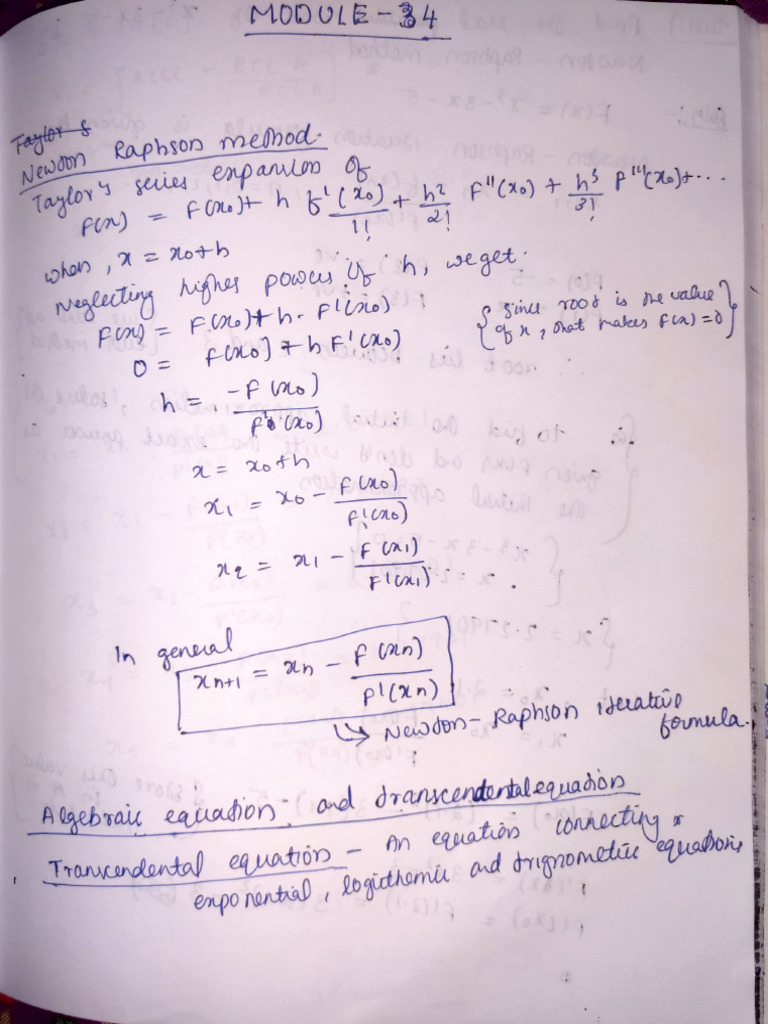 MODULE - 34
Taylor s
Newton Raphson method.
Taylor's series expansion of
F(x) = F(x0) + h f'(x0)/1! + h²/2! F''(x0) + h³/3! F'''(x0) + ...
when, x = x0+h
neglecting higher powers of h, we get.
F(x) = F(x0) + h. F'(x0)
0 = F(x0) + h F'(x0)
{ since root is the value of x, that makes F(x) = 0 }
h = -F(x0) / F'(x0)
∴
x = x0+h
x1 = x0 - F(x0)/F'(x0)
x2 = x1 - F(x1)/F'(x1) .
In general
xn+1 = xn - F(xn)/F'(xn)
↳ Newton - Raphson iterative formula.
Algebraic equation and transcendental equation
Transcendental equation - An equation connecting
exponential, logithemic and trignometric equations